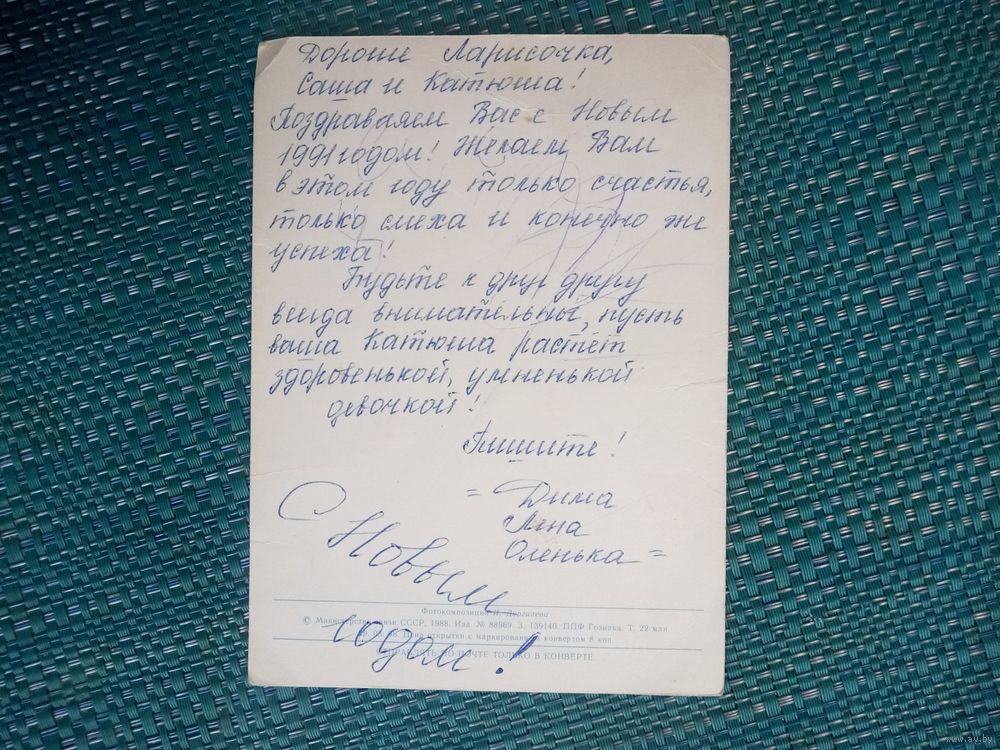 Дорогие Ларисочка,
Саша и Катюша!
Поздравляем Вас с Новым
1991 годом! Желаем Вам
в этом году только счастья,
только смеха и конечно же
успеха!
Будьте к друг другу
всегда внимательны, пусть
ваша Катюша растёт
здоровенькой, умненькой
девочкой!
Пишите!
= Дима
Лена
Оленька =
С Новым
годом!
Фотокомпозиция И. Дергилева
© Министерство связи СССР, 1988. Изд. № 88969. З. 139140. ППФ Гознака. Т. 22 млн.
Цена открытки с маркированным конвертом 8 коп.
ОТПРАВЛЯТЬ ПО ПОЧТЕ ТОЛЬКО В КОНВЕРТЕ.
www.ay.by